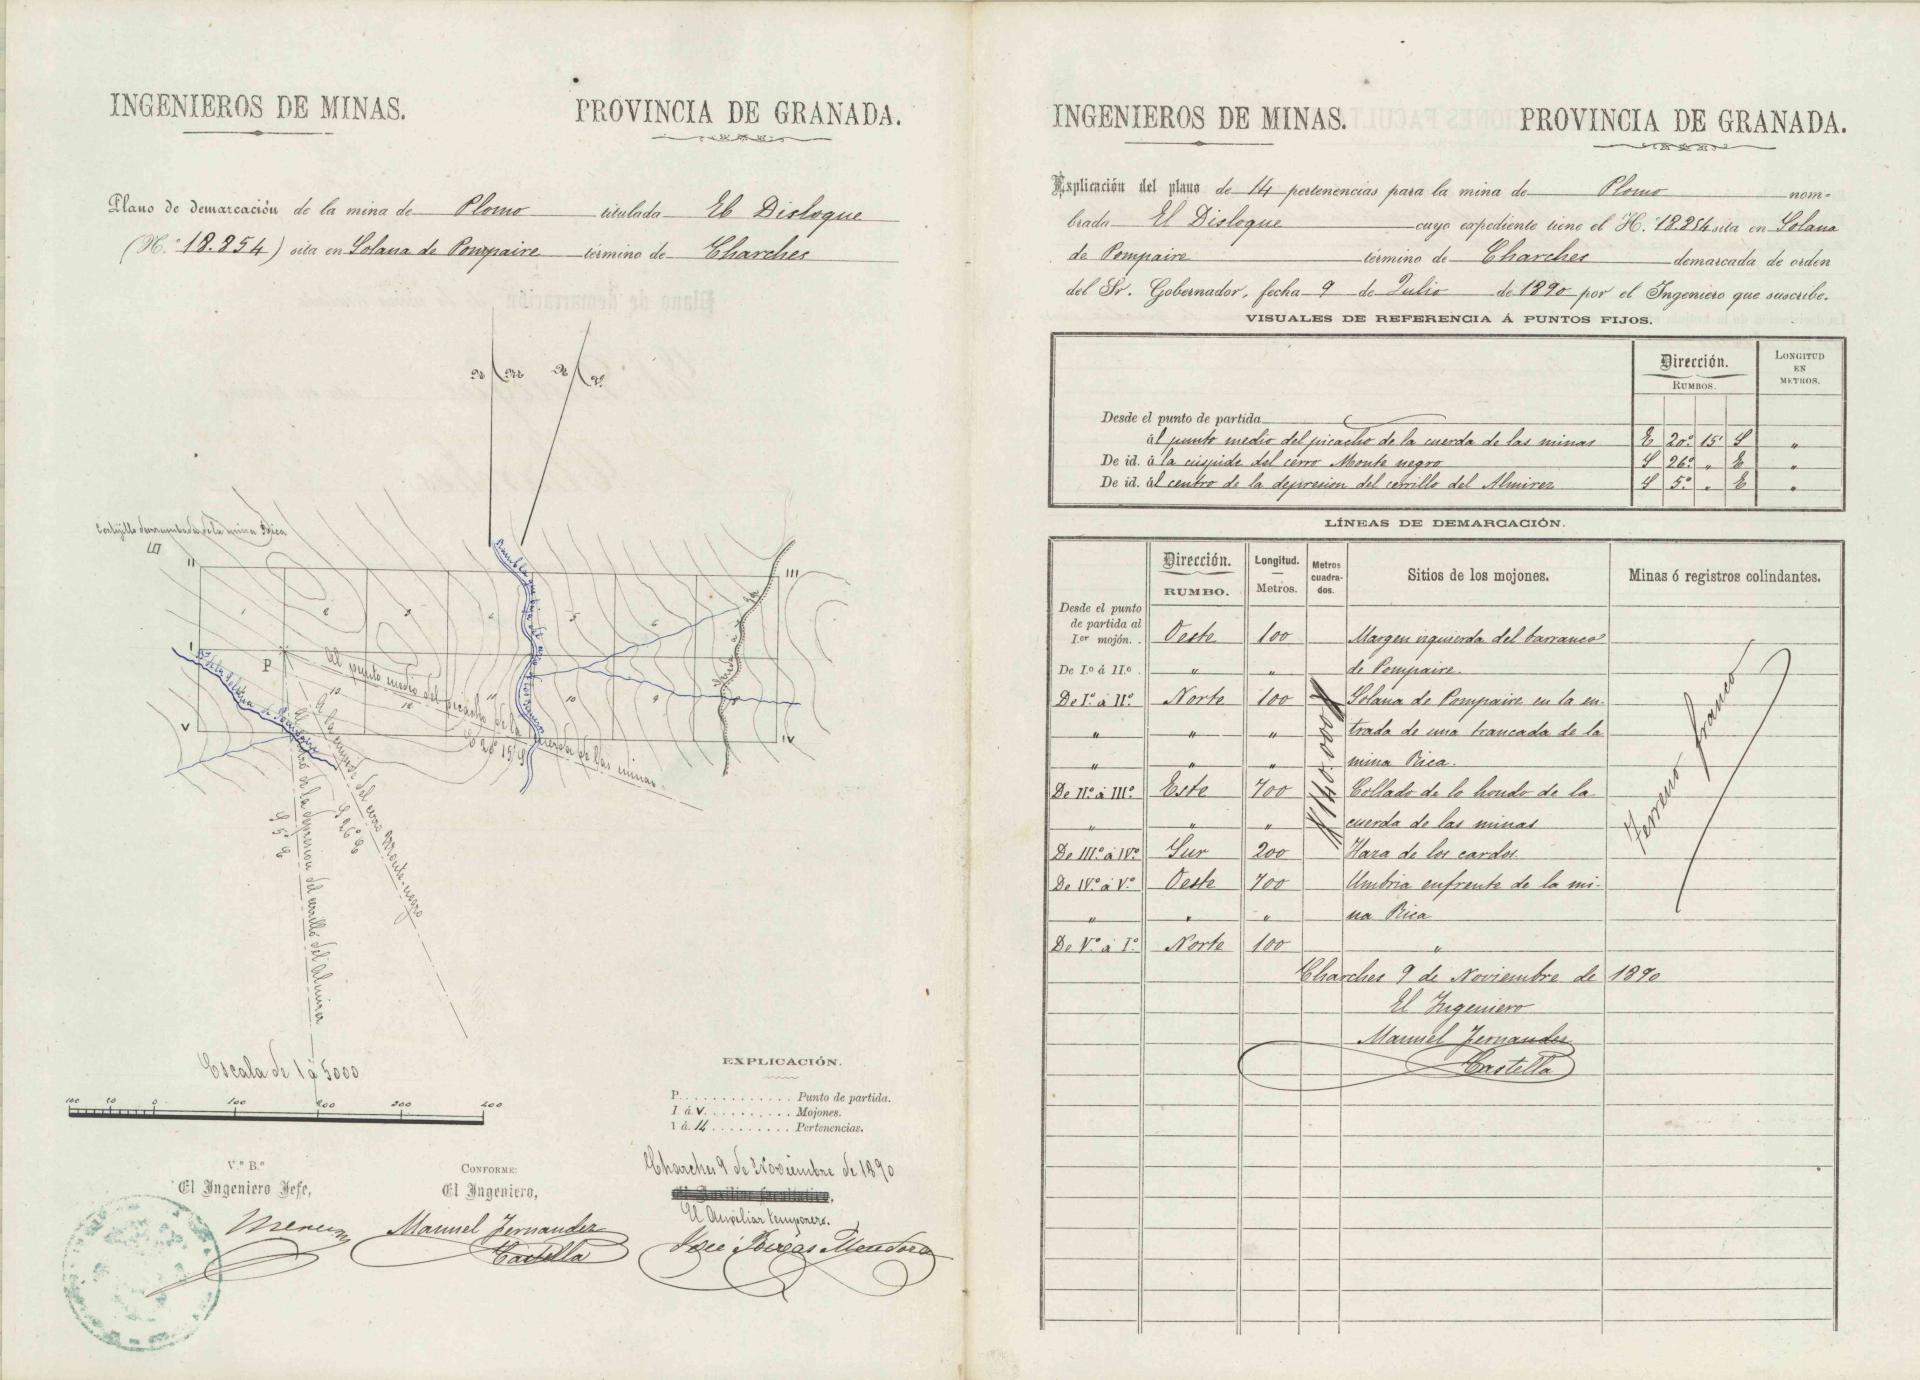 INGENIEROS DE MINAS.
PROVINCIA DE GRANADA.
Plano de demarcación de la mina de Plomo titulada El Disloque
(N.º 18.854) sita en Solana de Pompaire término de Charches
Cortijillo derrumbado de la mina Rica
II
III
1
2
3
4
5
6
I
P
Al punto medio del picacho de la cuerda de las minas
E 20º 15' S
10
9
V
IV
A la cuspide del cerro Monte-negro
S 26º E
Al centro de la depresion del cerrillo del Almirez
S 5º E
Escala de 1 á 5000
100 50 0 100 200 300 400
EXPLICACIÓN.
P. . . . . . . . . . . . . Punto de partida.
I á V. . . . . . . . . . Mojones.
1 á 14 . . . . . . . . . Pertenencias.
Charches 9 de Noviembre de 1890
V.º B.º
El Ingeniero Jefe,
CONFORME:
El Ingeniero,
Manuel Fernandez
Castella
El Auxiliar temporero.
José Mendoza
INGENIEROS DE MINAS.
PROVINCIA DE GRANADA.
Explicación del plano de 14 pertenencias para la mina de Plomo nom-
brada El Disloque cuyo expediente tiene el N.º 18.854 sita en Solana
de Pompaire término de Charches demarcada de orden
del Sr. Gobernador, fecha 9 de Julio de 1890 por el Ingeniero que suscribe.
VISUALES DE REFERENCIA Á PUNTOS FIJOS.
Dirección.
RUMBOS.
LONGITUD EN METROS.
Desde el punto de partida
ál punto medio del picacho de la cuerda de las minas E 20º 15' S "
De id. á la cuspide del cerro Monte negro S 26º " E "
De id. ál centro de la depresion del cerrillo del Almirez S 5º " E "
LÍNEAS DE DEMARCACIÓN.
Dirección.
RUMBO.
Longitud.
Metros.
Metros cuadrados.
Sitios de los mojones.
Minas ó registros colindantes.
Desde el punto
de partida al
1er mojón. . Oeste 100 Margen izquierda del barranco
De Iº á IIº . " " de Pompaire.
De Iº á IIº Norte 100 Solana de Pompaire en la en-
" " " trada de una trancada de la
" " " mina Rica.
De IIº á IIIº Este 700 Collado de lo hondo de la
" " " cuerda de las minas
De IIIº á IVº Sur 200 Haza de los cardos
De IVº á Vº Oeste 700 Umbria enfrente de la mi-
" " " na Rica
De Vº á Iº Norte 100 "
140.000
Terreno franco
Charches 9 de Noviembre de 1890
El Ingeniero
Manuel Fernandez
Castella